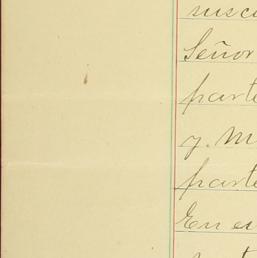 susc
Señor
parte
y M
parte
En es